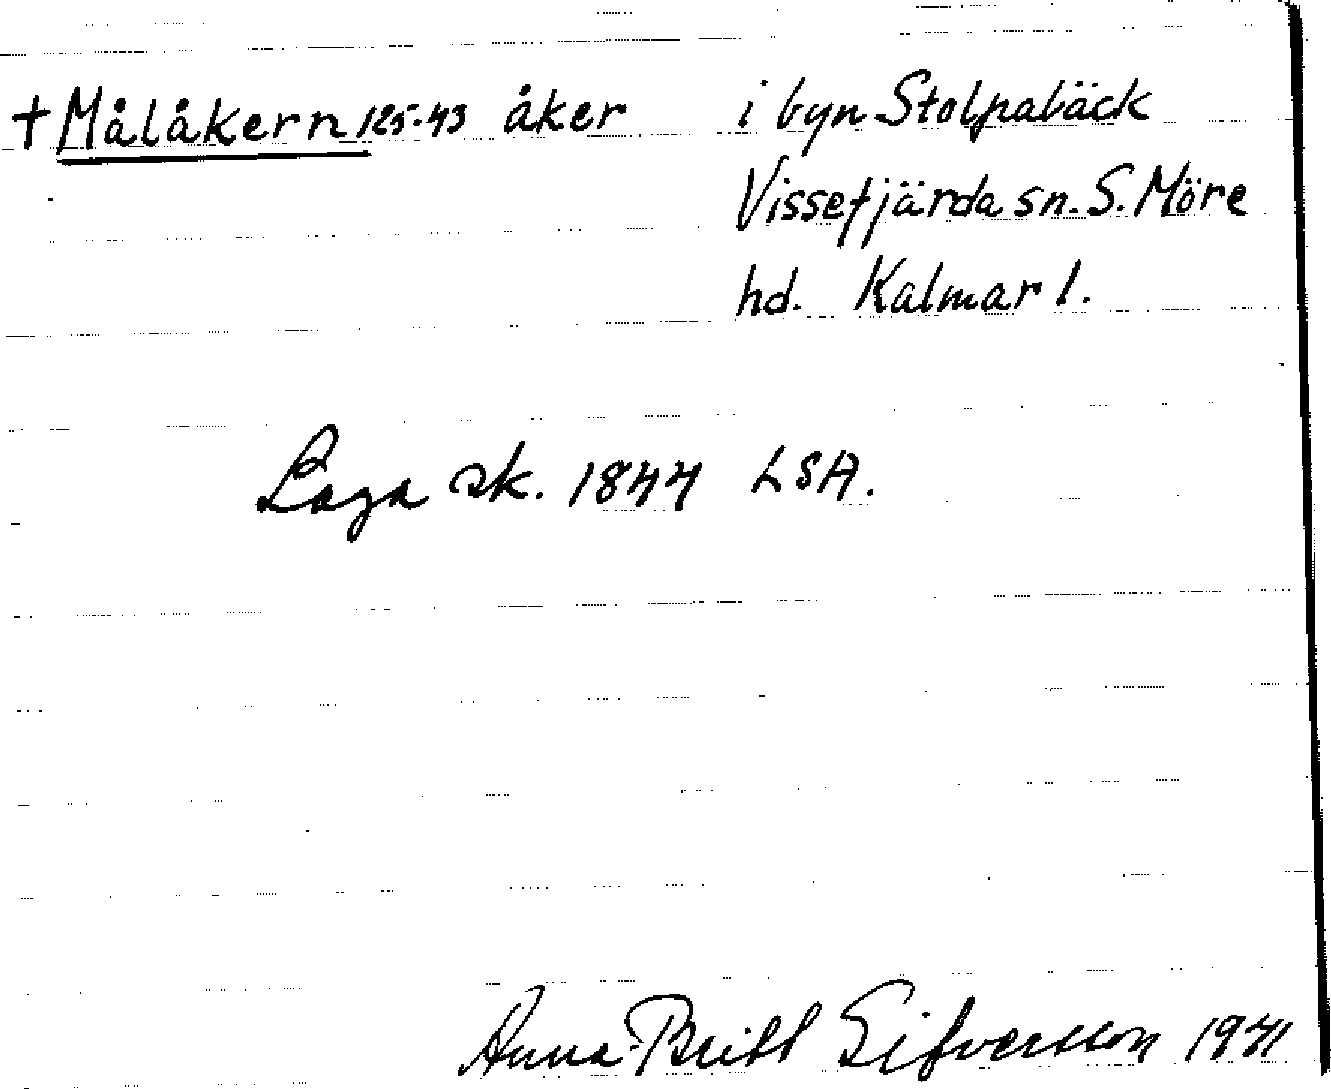 †Målåkern 125-43 åker i byn Stolpabäck
Vissefjärda sn. S. Möre
hd. Kalmar l.
Laga sk. 1844 LSA.
Anna-Britt Sifversson 1941